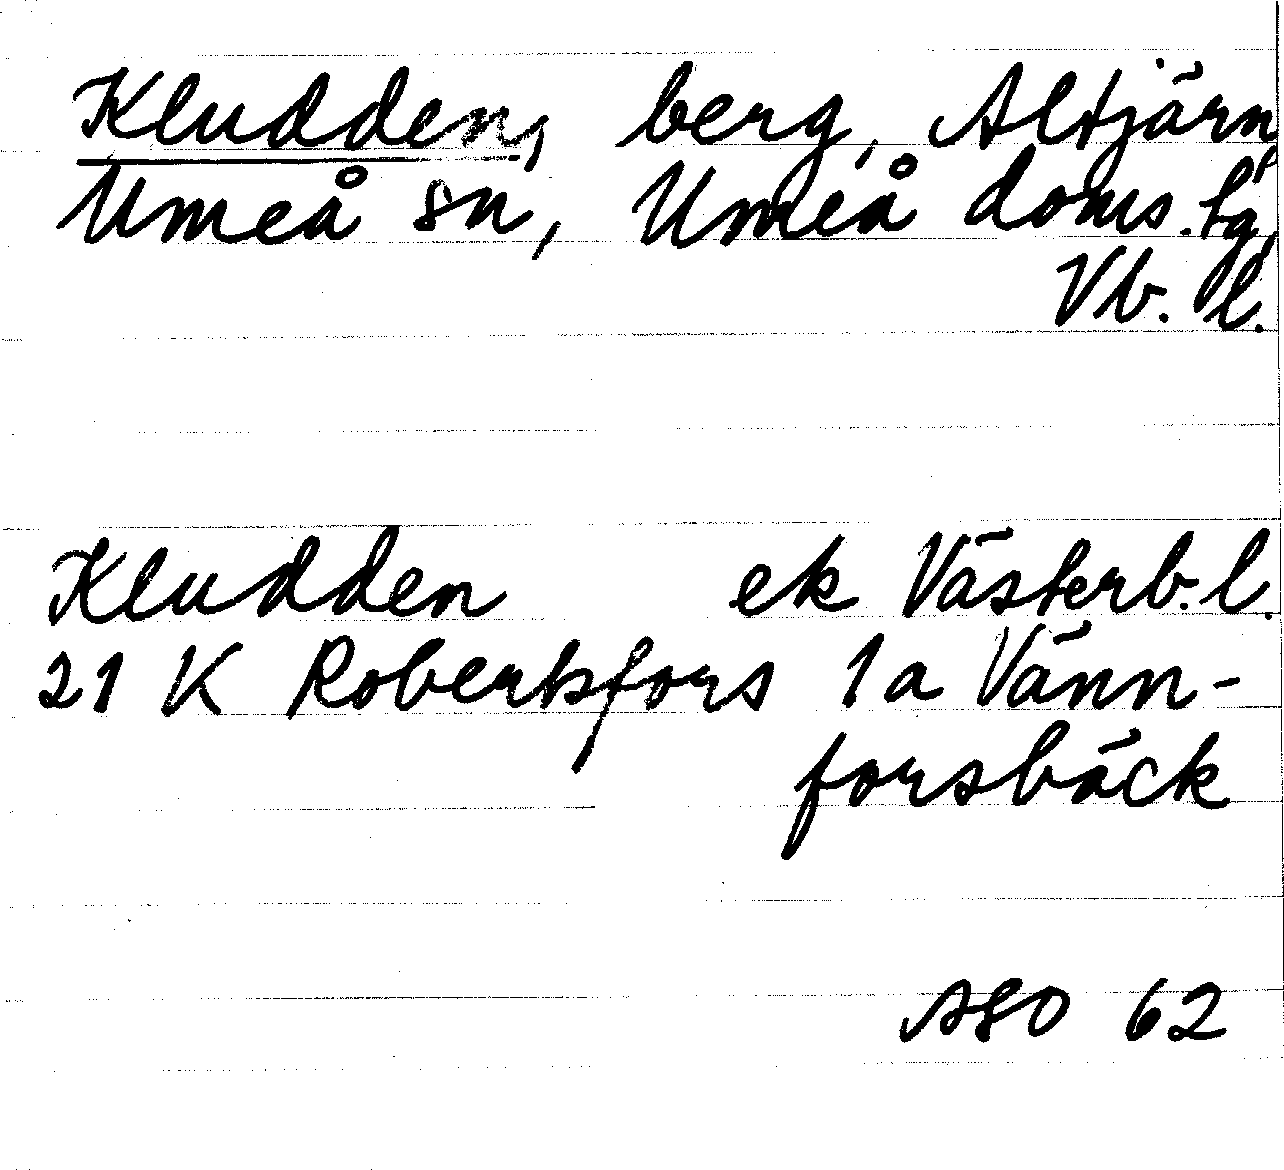 Kludden, berg, Altjärn,
Umeå sn, Umeå doms.tg,
Vb. l.
Kludden ek Västerb.l.
21 K Robertsfors 1a Vänn-
forsbäck
ASO 62